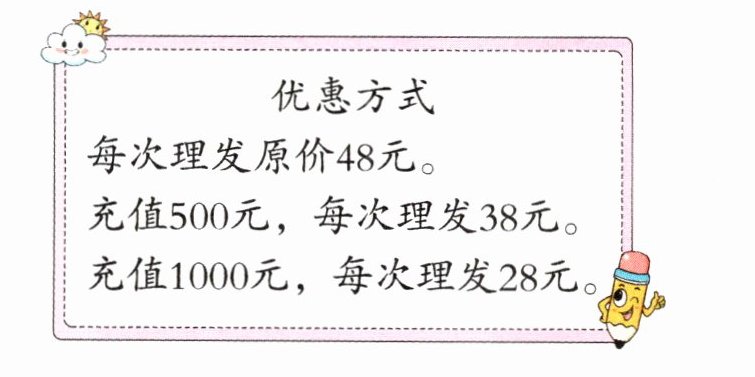 优惠方式
每次理发原价48元。
充值500元，每次理发38元。
充值1000元，每次理发28元。